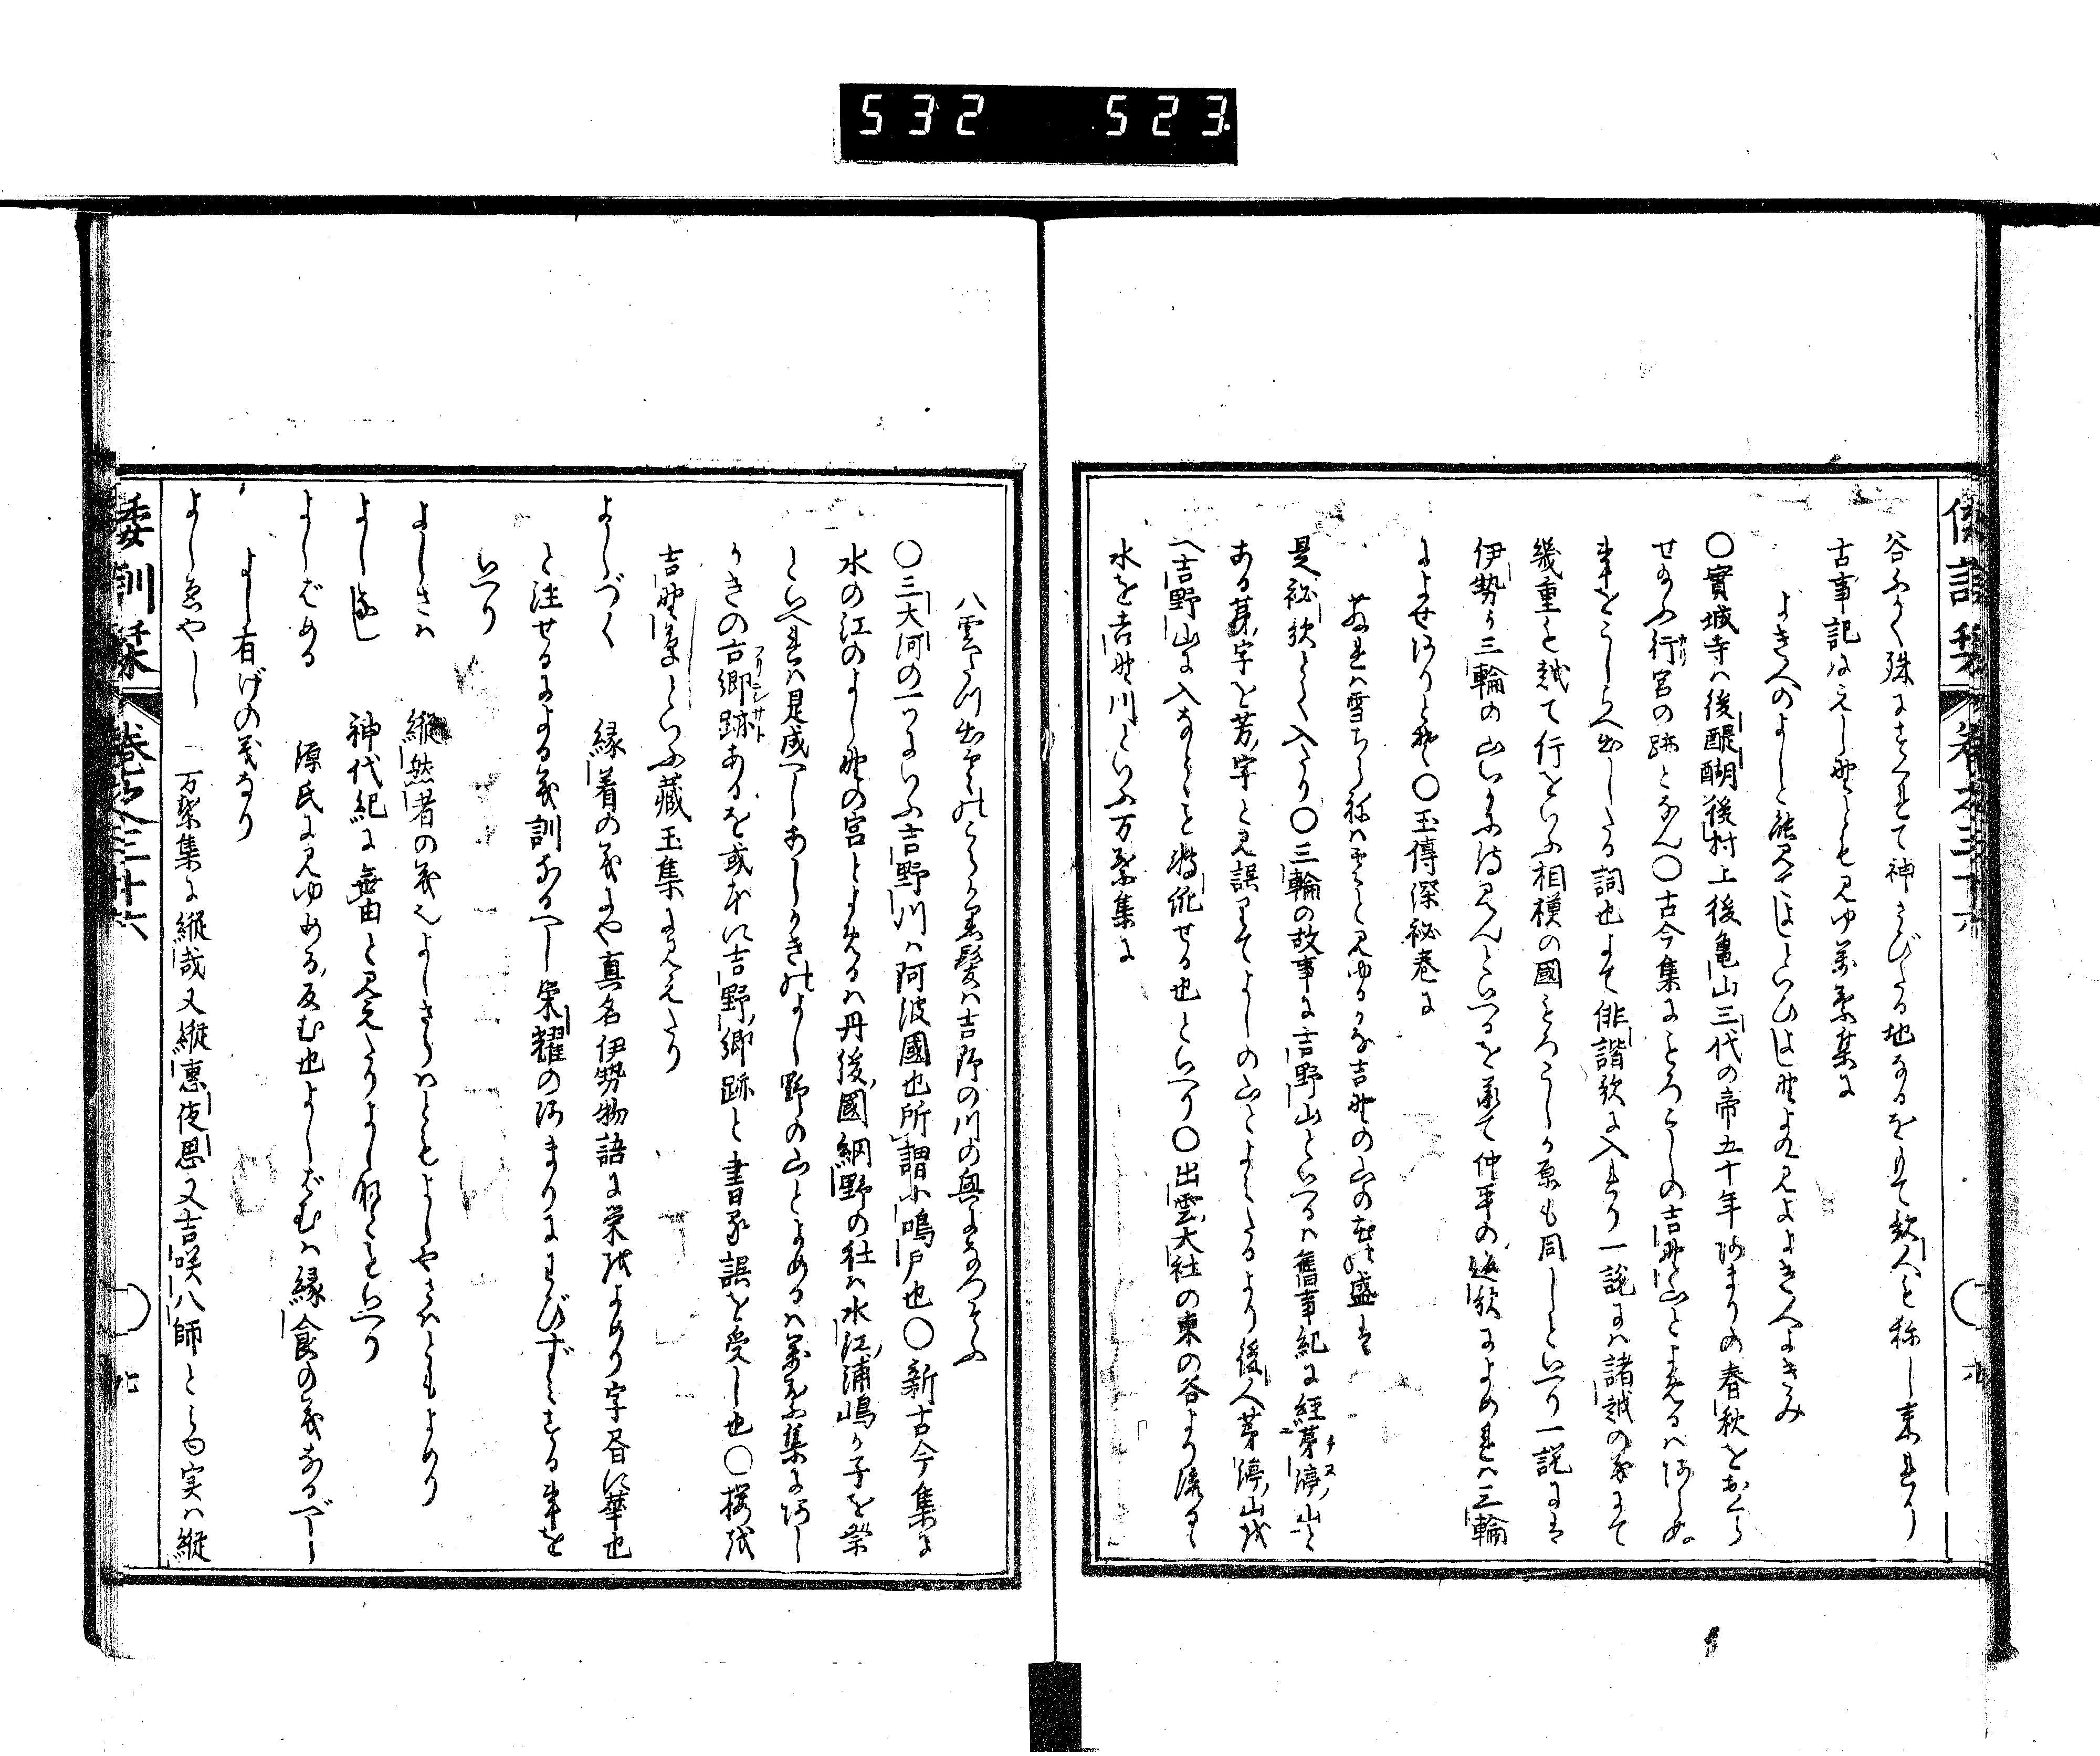 532 523
谷ふかく殊にすくれて神さびたる地なるをもて歌人と称し来れり
古事記にえし野ともも見ゆ萬葉集に
よき人のよしと能見てよしといひし野よく見よよき人よきみ
○實城寺ハ後醍醐後村上後亀山三代の帝五十年あまりの春秋をおくら
せ給ふ行宮の跡となん○古今集にもろこしの吉野山とよめるハあらぬ
事をこしらへ出したる詞也よて俳諧歌に入れり一説にハ諸越の名にて
幾重も越て行をいふ相模の國もろこしか原も同しといへり一説には
伊勢か三輪の山いかに待見んといへるを兼て仲平の返歌によめれハ三輪
によせありとぞ○玉傳深秘巻に
是秘歌とて入たり○三輪の故事に吉野山といへるハ舊事紀に経茅渟山と
ある茅字を芳字と見誤りてよしの山とよみたるより後人茅渟山を
へ吉野山に入なともと将侂せる也といへり○出雲大社の東の谷より流るゝ
水を吉野川といふ万葉集に
八雲たつ出雲の子らか黒髪ハ吉野の川の奥になつそふ
○三大河の一つにいふ吉野川ハ阿波國也所謂小鳴戸也○新古今集に
水の江のよし野の宮とよめるハ丹後國網野の社ハ水江浦嶋か子を祭
といへれハ是成へしあしかきのよし野の山とよめるハ萬葉集にあし
かきの古郷跡あるを或本に吉野郷跡と書る誤を受し也○桜を
吉野草といふ藏玉集に見えたり
よしづく 縁着の義にや真名伊勢物語に栄をよめり字書に華也
と注せるによる義訓なるへし栄耀のあまりにわびずもする事を
いへり
よしさハ 縦然者の義也よしさらハともよしやさハともよめり
よしなし 神代紀に無由と見えたりよしなくもいへり
よしばめる 源氏に見ゆめる反む也よしばむハ縁食の義なるべし
よし有げの義なり
よしゑやし 万葉集に縦哉又縦恵夜思又吉咲八師とも実ハ縦
倭訓栞 巻之三十六